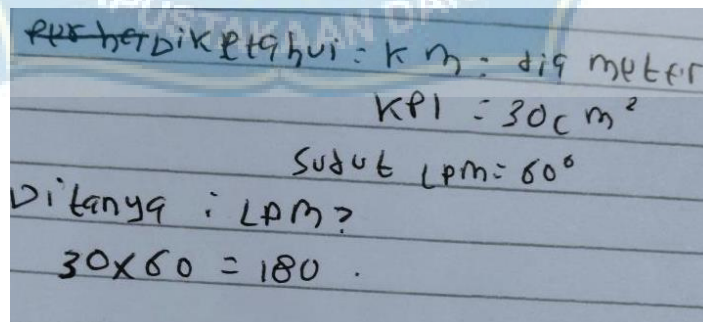 PUSTAKAAN DAN
Diketahui : KM : diameter
KPl = 30 cm²
Sudut LPM = 60°
Ditanya : LPM?
30 x 60 = 180 .